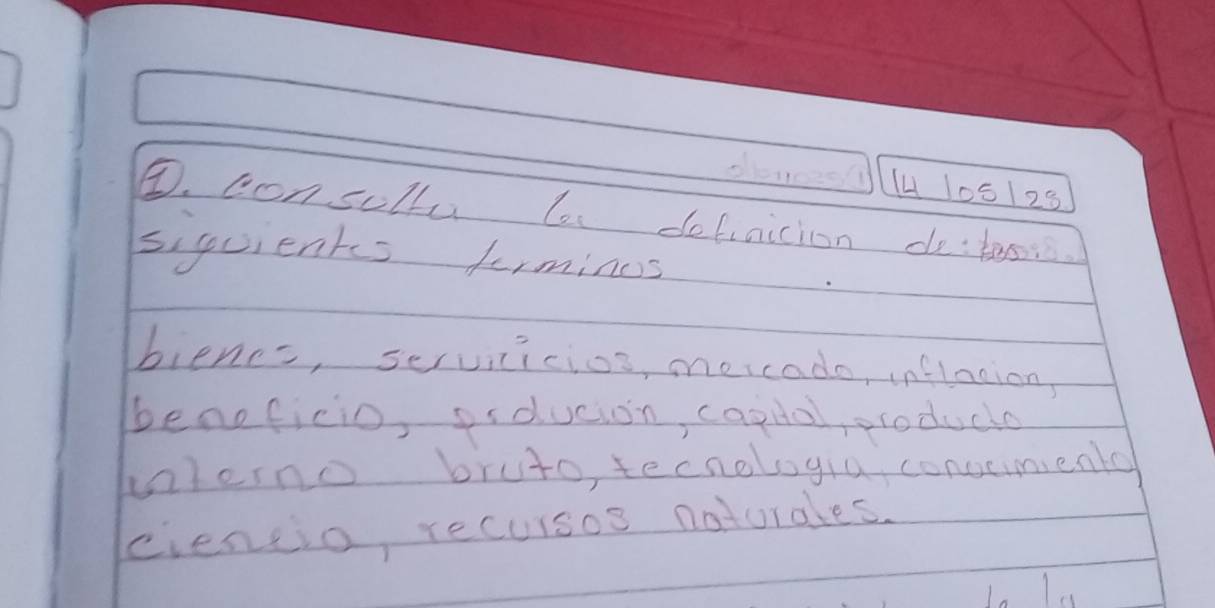 14/05/25
①. consulta la definicion de:
siguientes terminos
bienes, servicicios, mercado, inflacion,
beneficio, producion, capital, producto
interno bruto, tecnologia, conocimiento
ciencia, recursos naturales.
la